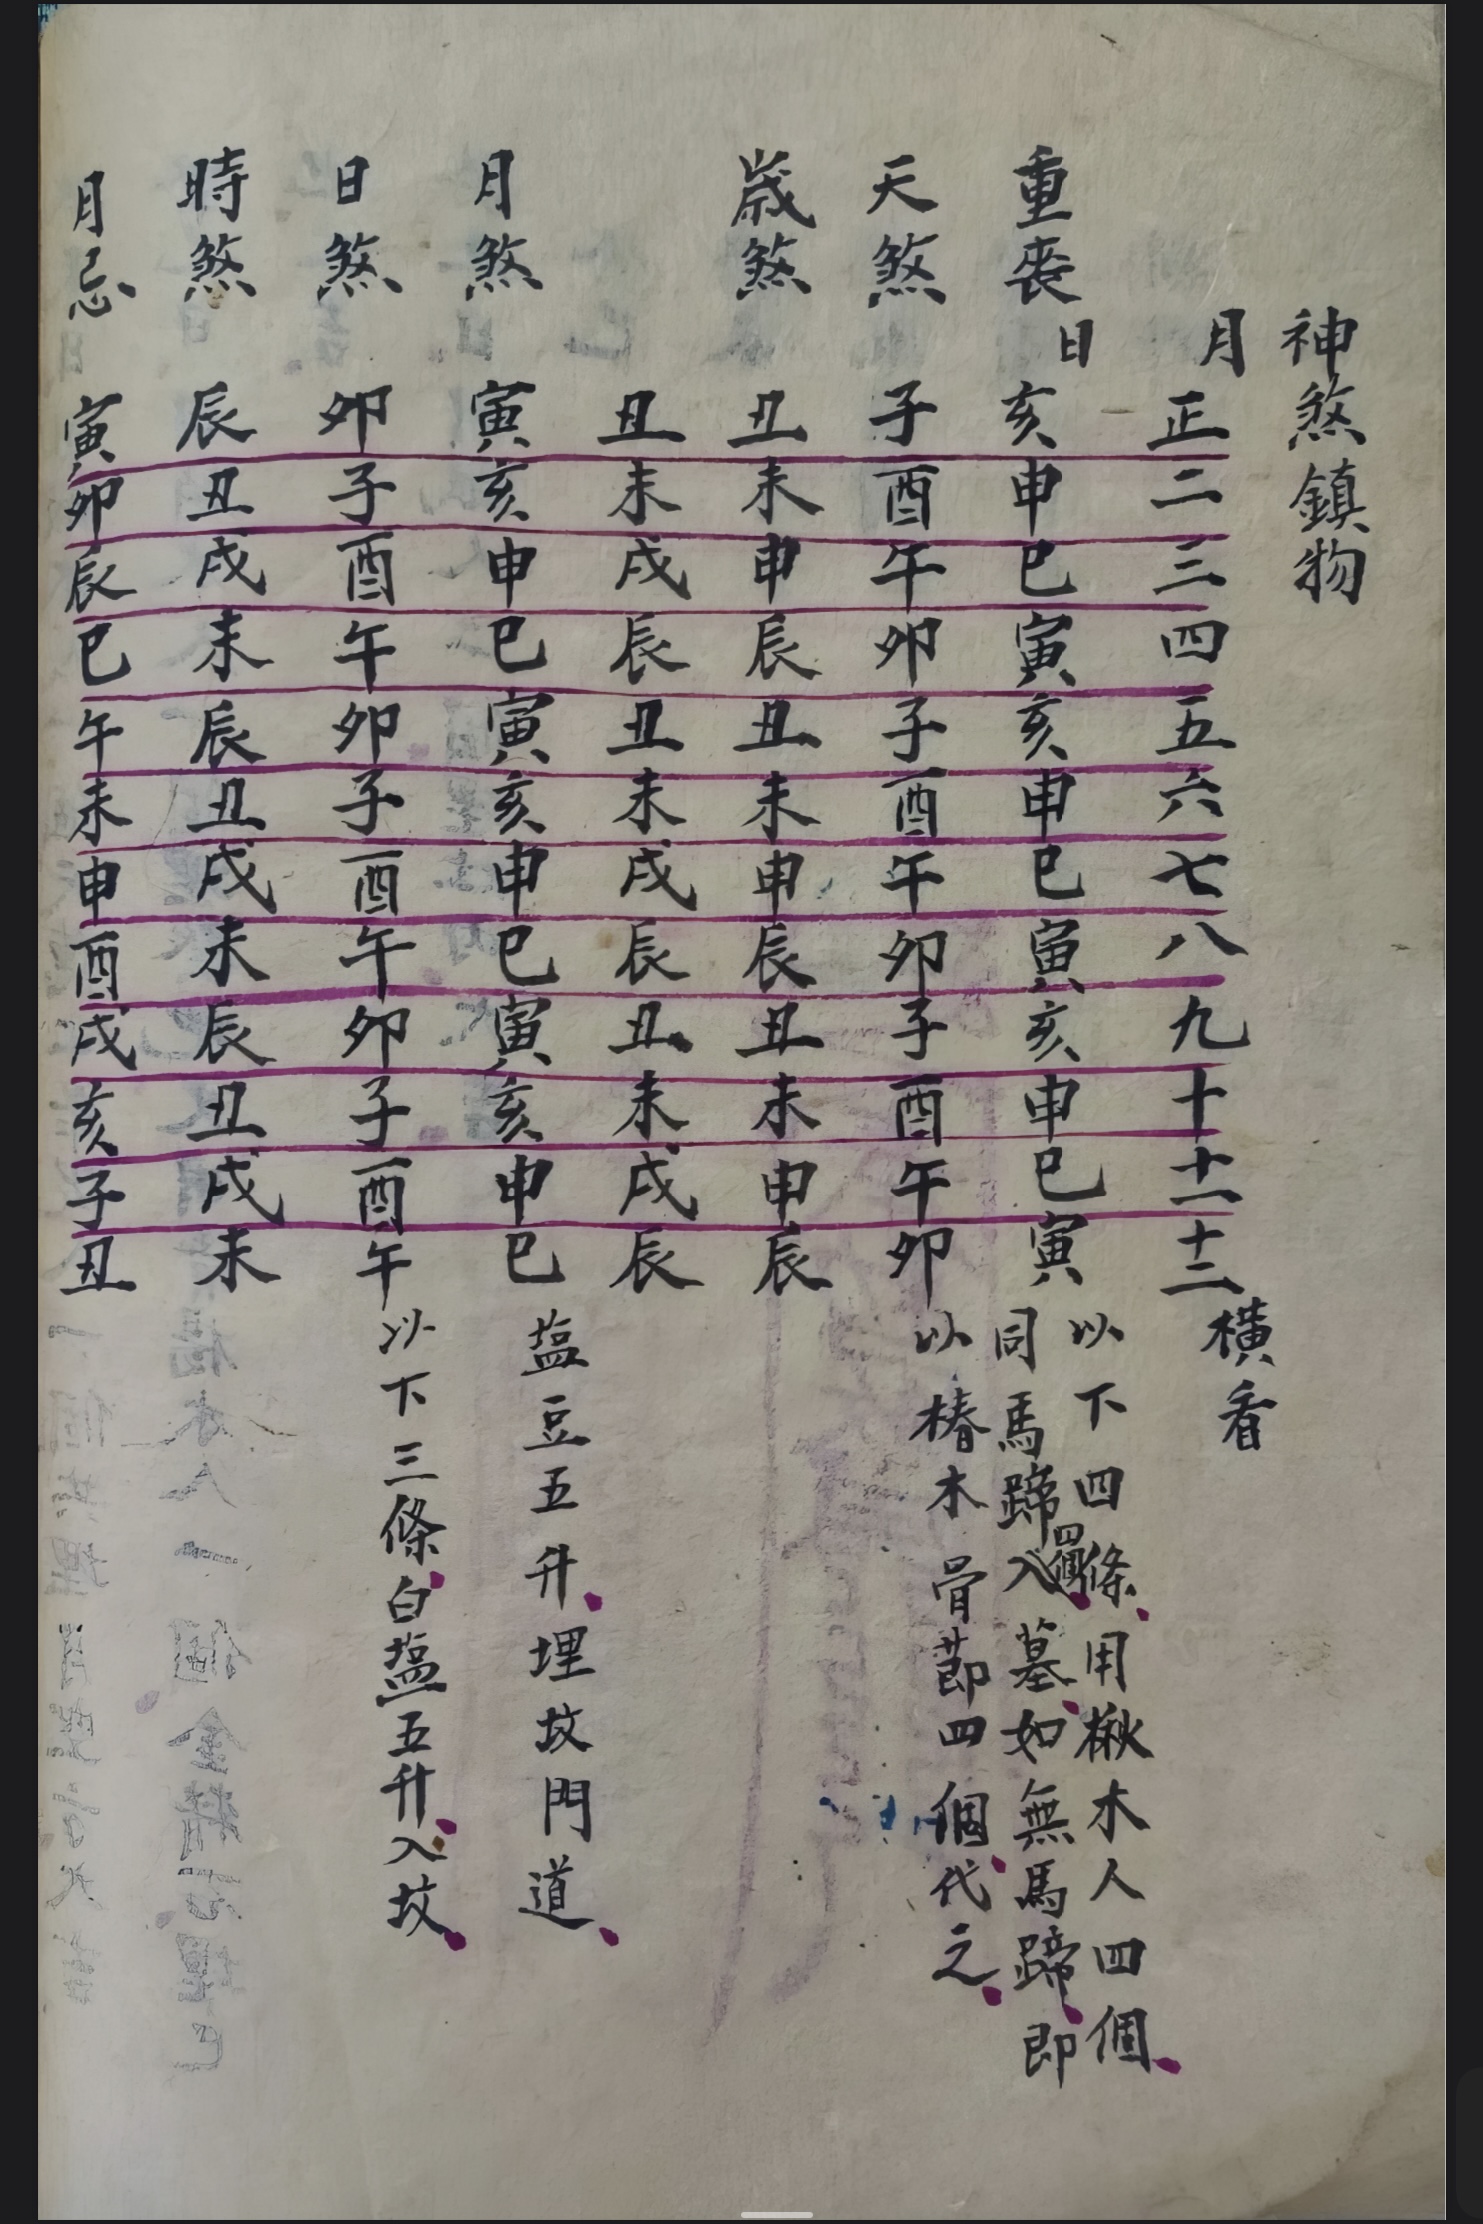 神煞鎮物
月 正二三四五六七八九十十一十二 橫看
重喪日 亥申巳寅亥申巳寅亥申巳寅
以下四條用楸木人四個
同馬蹄四個入墓如無馬蹄即
以椿木骨節四個代之
天煞 子酉午卯子酉午卯子酉午卯
歲煞 丑未申辰丑未申辰丑未申辰
丑未戌辰丑未戌辰丑未戌辰
月煞 寅亥申巳寅亥申巳寅亥申巳 塩豆五升埋坟門道
日煞 卯子酉午卯子酉午卯子酉午 以下三條白塩五升入坟
時煞 辰丑戌未辰丑戌未辰丑戌未
月忌 寅卯辰巳午未申酉戌亥子丑